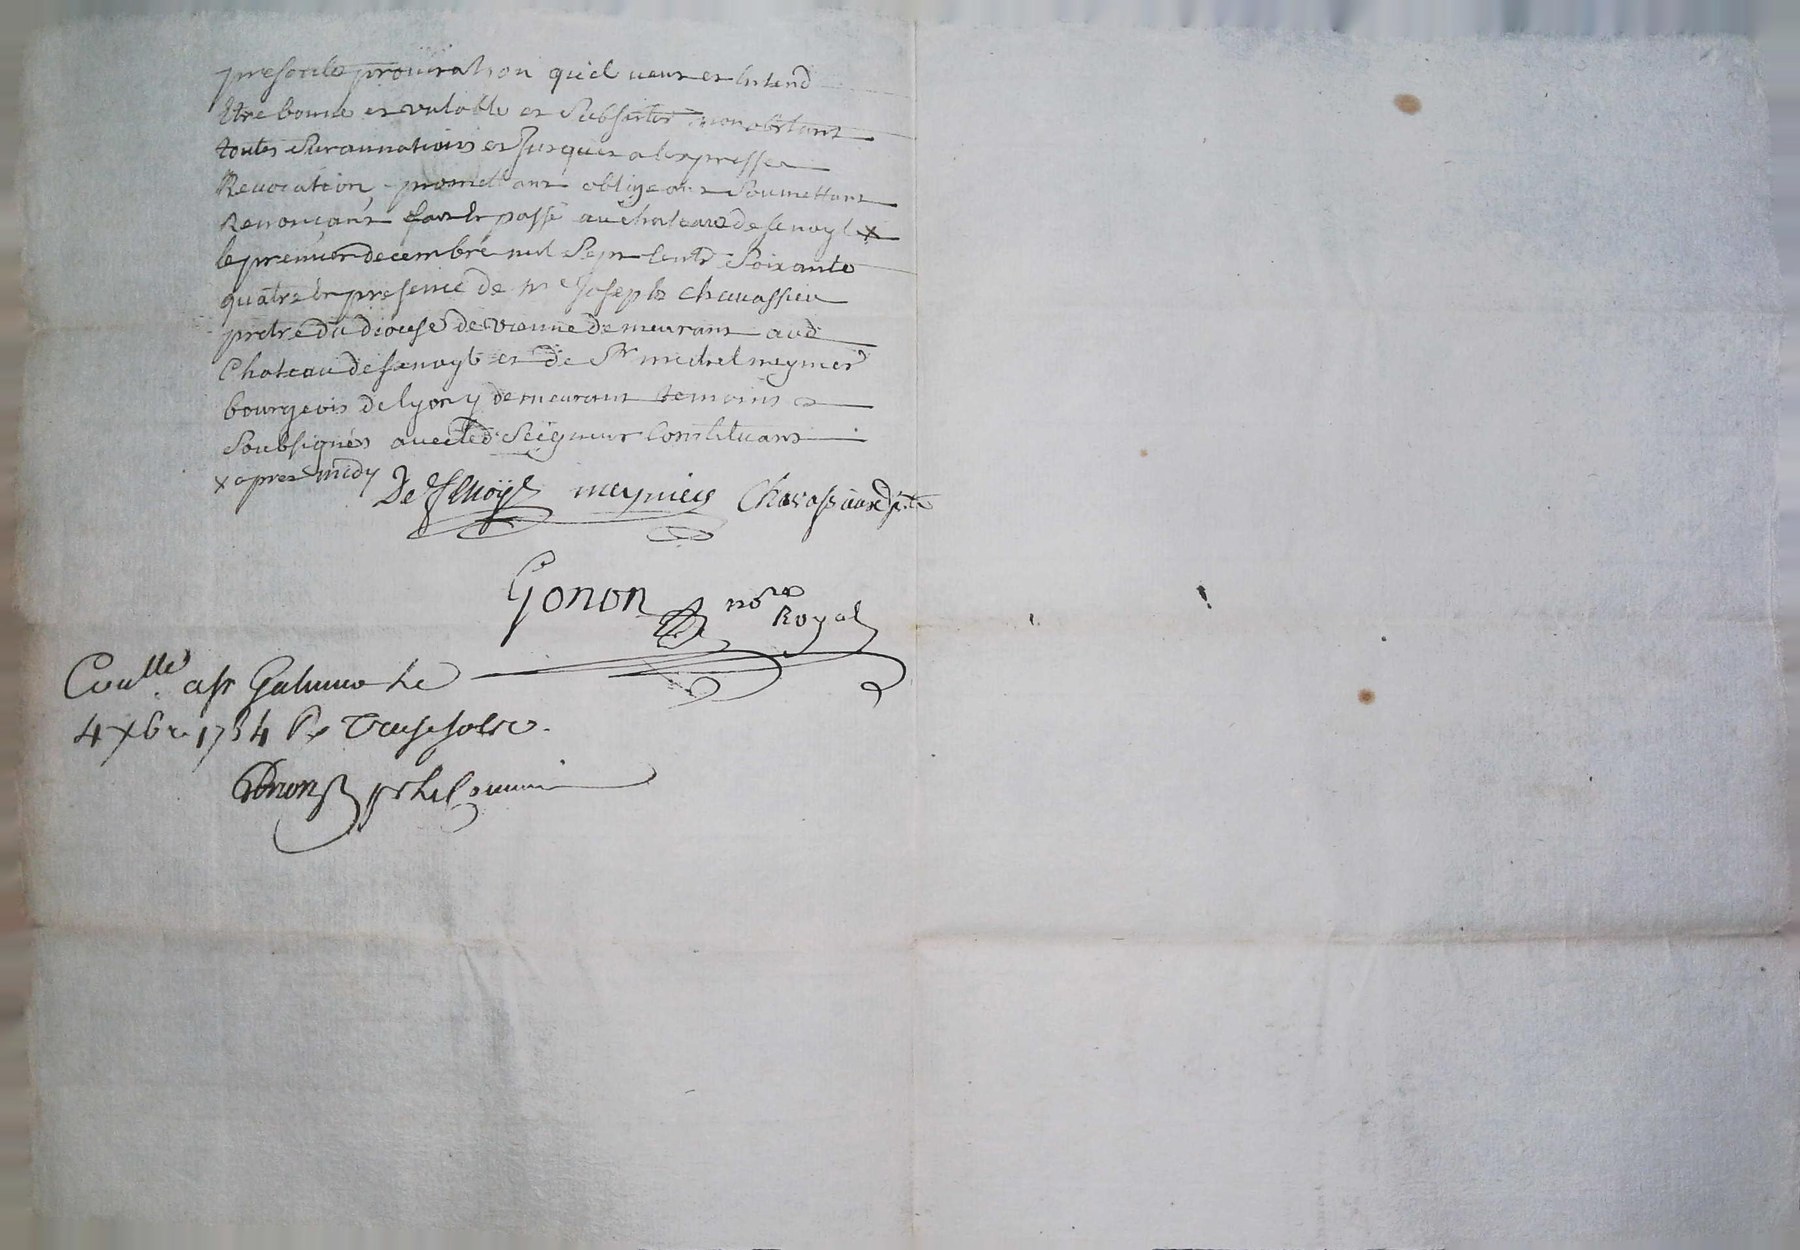 presente procuration qu'il veut et entend
Etre bonne et valable et subsister nonobstant
toutes surannations et jusques a lexpresse
Revocation, promettant obligeant soumettant
Renonçant fait et passé au chateau de fenoyl x
le premier decembre mil sept cents soixante
quatre en presence de me Joseph Chavassieu
pretre du diocese de vienne demeurant aud
Chateau de fenoyl et de Sr michel meynier
bourgeois de lyon y demeurant temoins
soubsignés avec led Seigneur Constituant
x apres midy
De fenoÿl meynier Chavassieux ptre
Gonon nore
Royal
Coullé a st Galmier le
4 xbre 1764 R treize sols
Gonon